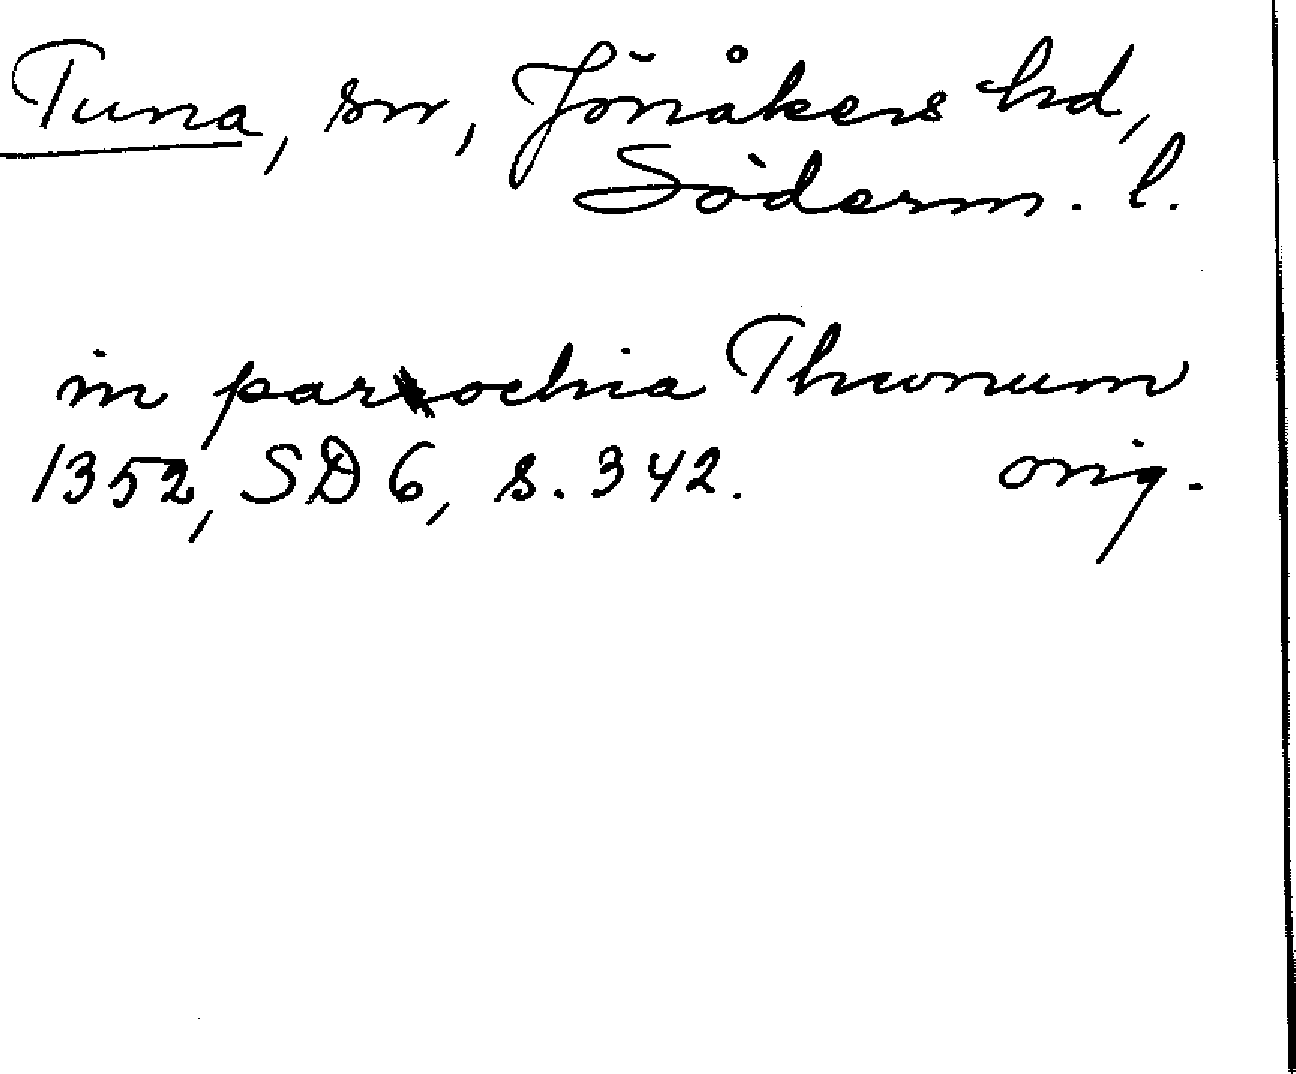 Tuna, sn, Jönåkers hd,
Söderm. l.
in parochia Thwnum
1352, SD 6, s. 342. orig.